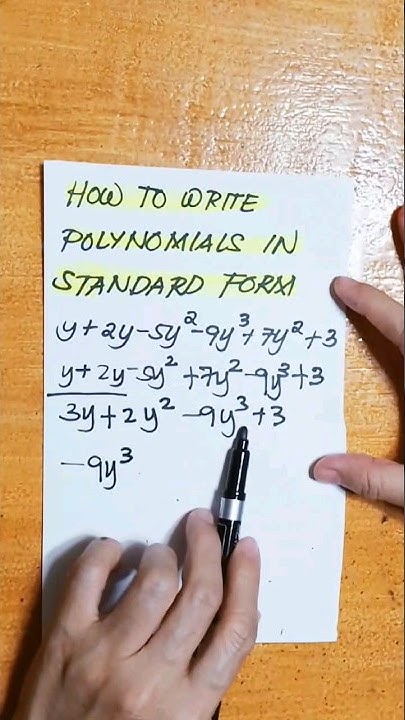 HOW TO WRITE
POLYNOMIALS IN
STANDARD FORM
y+2y-5y²-9y³+7y²+3
y+2y-5y²+7y²-9y³+3
3y+2y²-9y³+3
-9y³